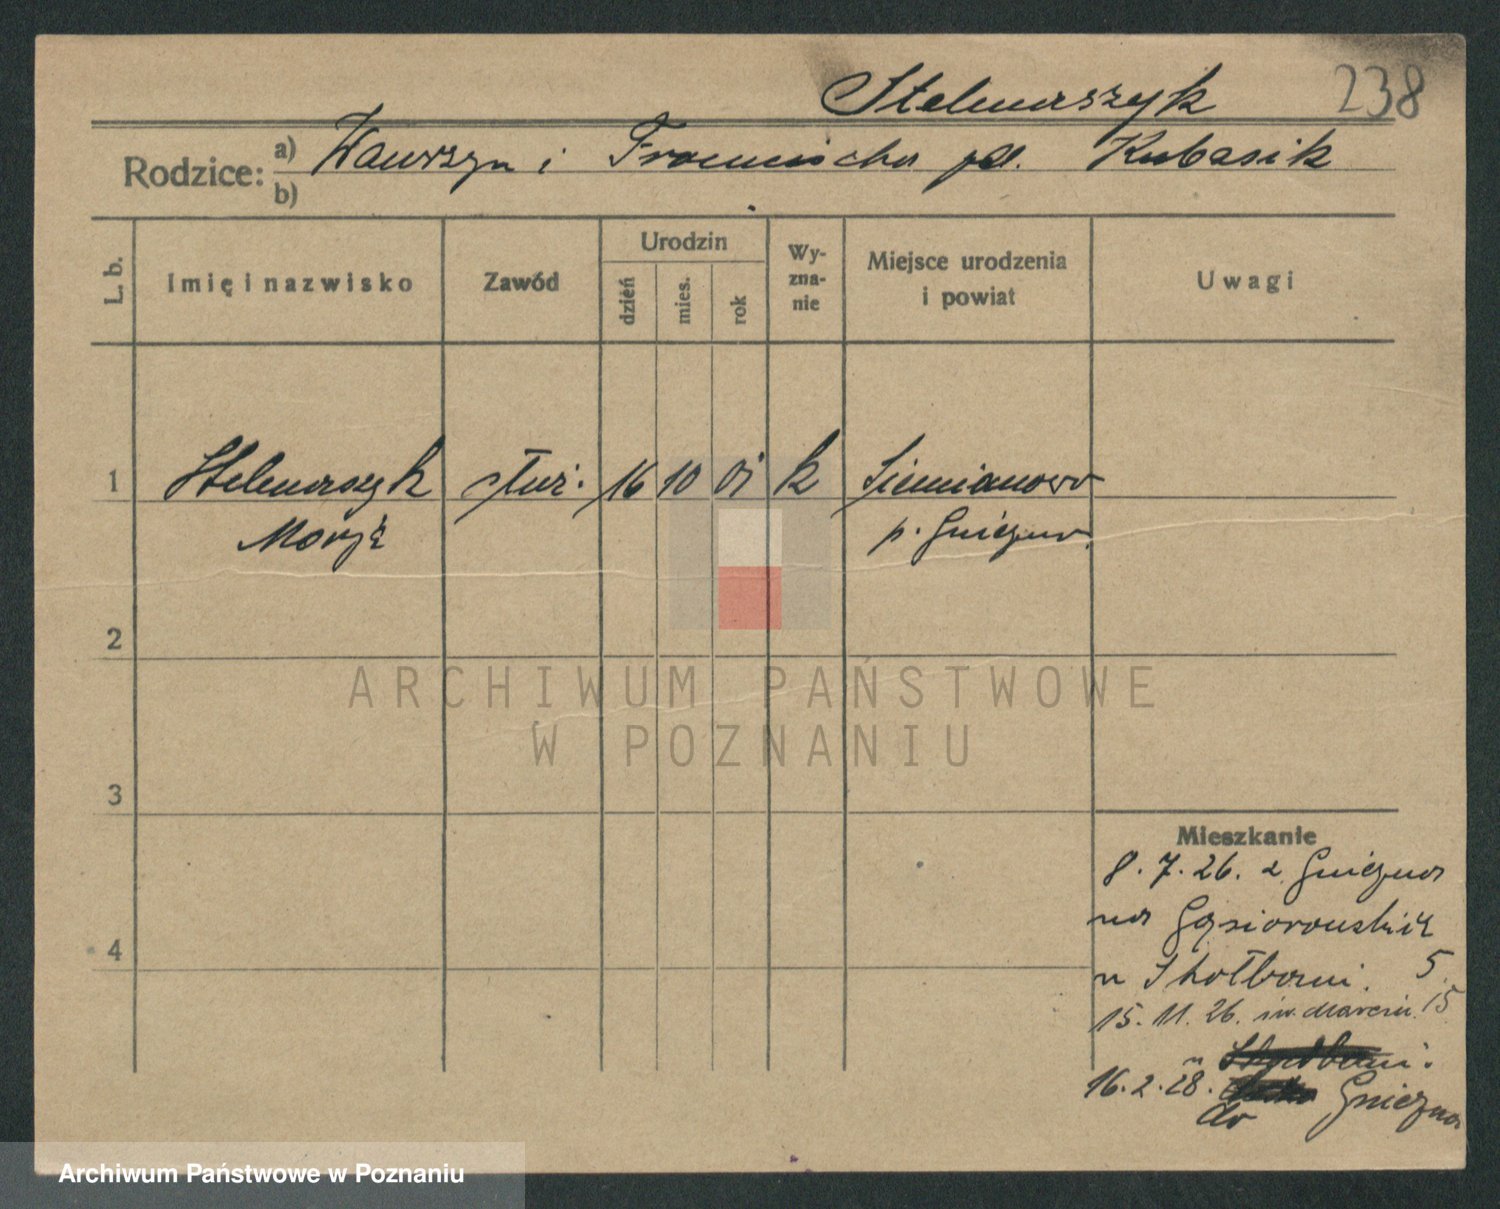 238
Stelmaszyk
Rodzice: a) Wawrzyn i Franciszka Kubasik
b)
L. b. Imię i nazwisko Zawód Urodzin dzień mies. rok Wy-zna-nie Miejsce urodzenia i powiat Uwagi
1 Stelmaszyk służ. 16 10 01 k Siemianowo
Marja p. Gniezno
2
3
4
Mieszkanie
8. 7. 26. z Gniezna
na Gąsiorowskich 5
u
15. 11. 26. św. Marcin 15
u
16. 2. 28. do Gniezna
ARCHIWUM PAŃSTWOWE
W POZNANIU
Archiwum Państwowe w Poznaniu